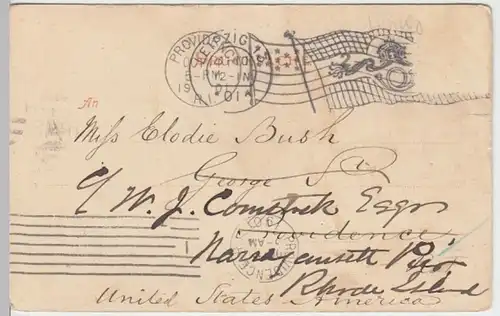 PROVIDENCE
R.I.
An
Miss Elodie Bush
George St
C/ W. J. Comstock Esqr
Providence
Narragansett Pier
Rhode Island
United States America
PROVIDENCE